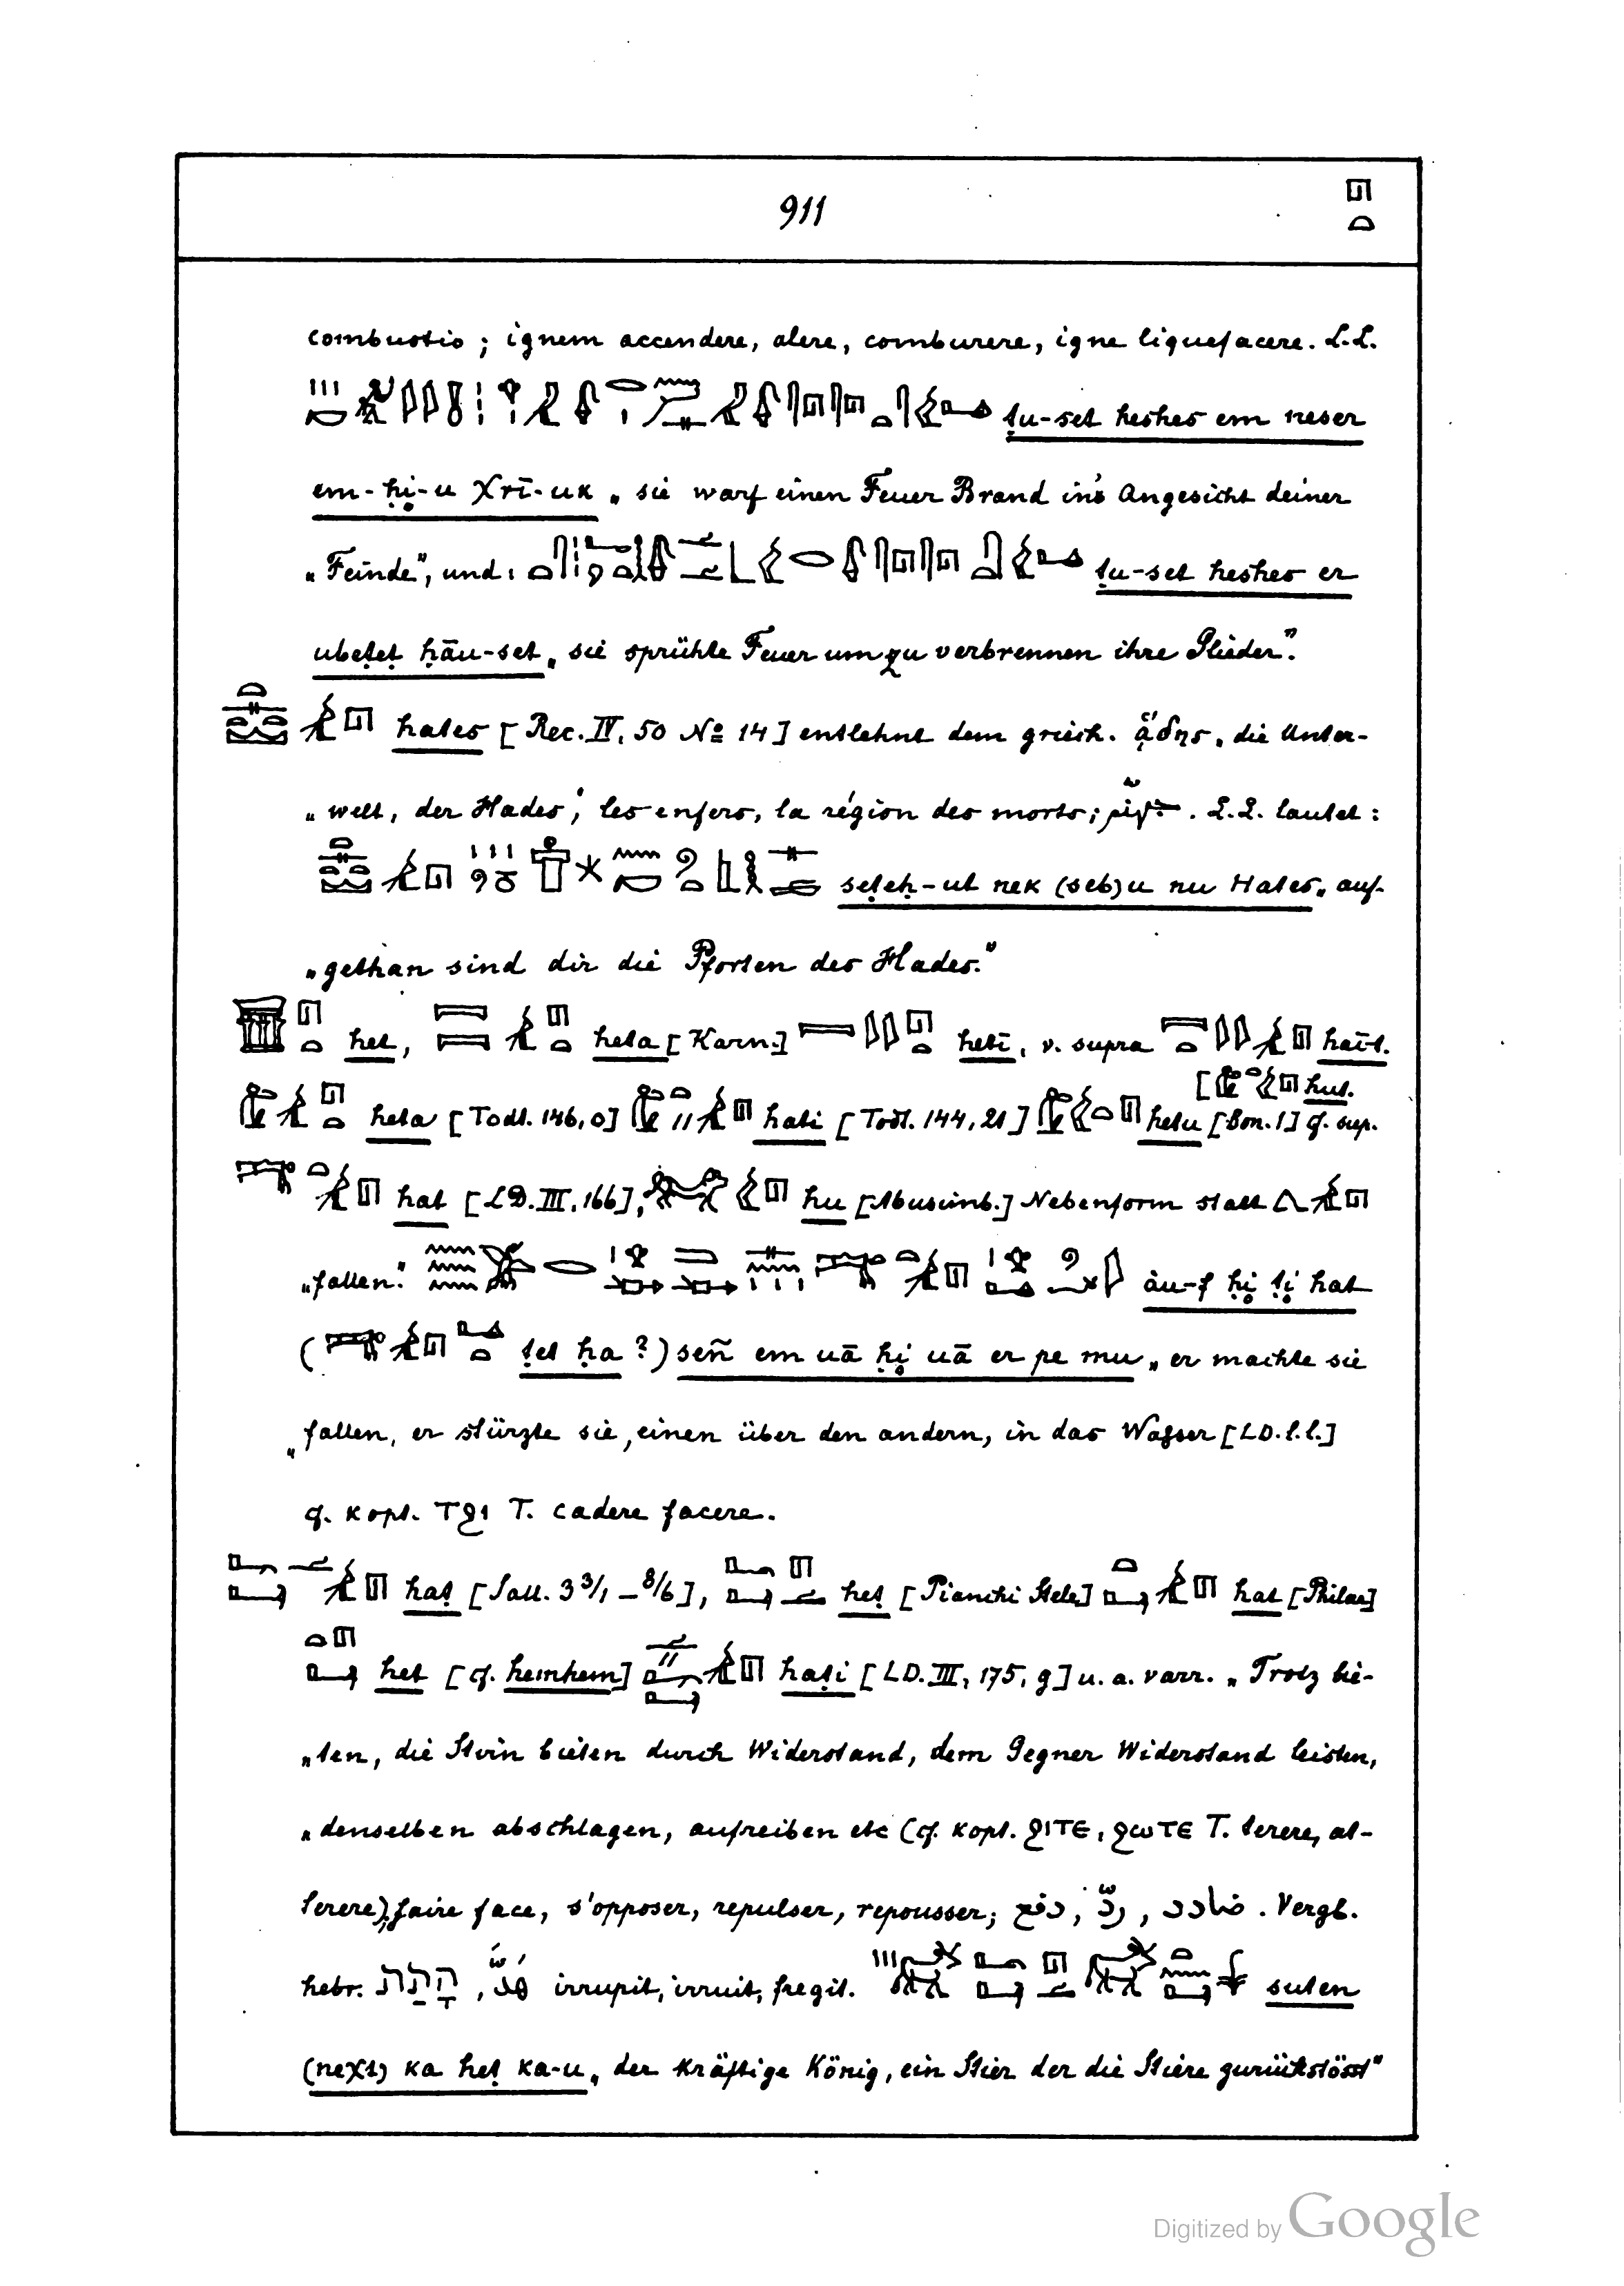 911
combustio; ignem accendere, alere, comburere, igne liquefacere. L.L.
ṭu-set heshes em neser
em-ḥi̥-u χrī-uk „sie warf einen Feuer Brand in's Angesicht deiner
„Feinde", und: ṭu-set heshes er
ubeṭeṭ ḥāu-set „sie sprühte Feuer um zu verbrennen ihre Glieder."
hates [Rec. IV, 50 No 14] entlehnt dem griech. ᾅδης „die Unter-
„welt, der Hades", les enfers, la région des morts; L.L. lautet:
seṭeḥ-ut nek (seb)u nu Hates „auf-
„gethan sind dir die Pforten des Hades."
het, heta [Karn.] hetī, v. supra haīt.
[hut.
heta [Todt. 146,0] hati [Todt. 144,21] hetu [Bon. I] cf. sup.
hat [LD. III, 166], hu [Abusimb.] Nebenform statt
„fallen." àu-f ḥi̥ ṭi̥ hat
(ṭet ḥa?) señ em uā ḥi̥ uā er pe mu „er machte sie
„fallen, er stürzte sie, einen über den andern, in das Wasser [LD. l.l.]
cf. kopt. ⲧϩⲓ T. cadere facere.
haṭ [Sall. 3 3/1 – 8/6], heṭ [Pianchi Stele] hat [Philae]
het [cf. hemhem] haṭi [LD. III, 175, g] u. a. varr. „Trotz bie-
„ten, die Stirn bieten durch Widerstand, dem Gegner Widerstand leisten,
„denselben abschlagen, aufreiben etc (cf. kopt. ϩⲓⲧⲉ, ϩⲱⲧⲉ T. terere, at-
terere), faire face, s'opposer, repulser, repousser; دفع, ردّ, ضادد. Vergl.
hebr. הָתַת, هَدَّ irrupit, irruit, fregit. suten
(neχt) ka heṭ ka-u „der kräftige König, ein Stier der die Stiere zurückstösst"
Digitized by Google